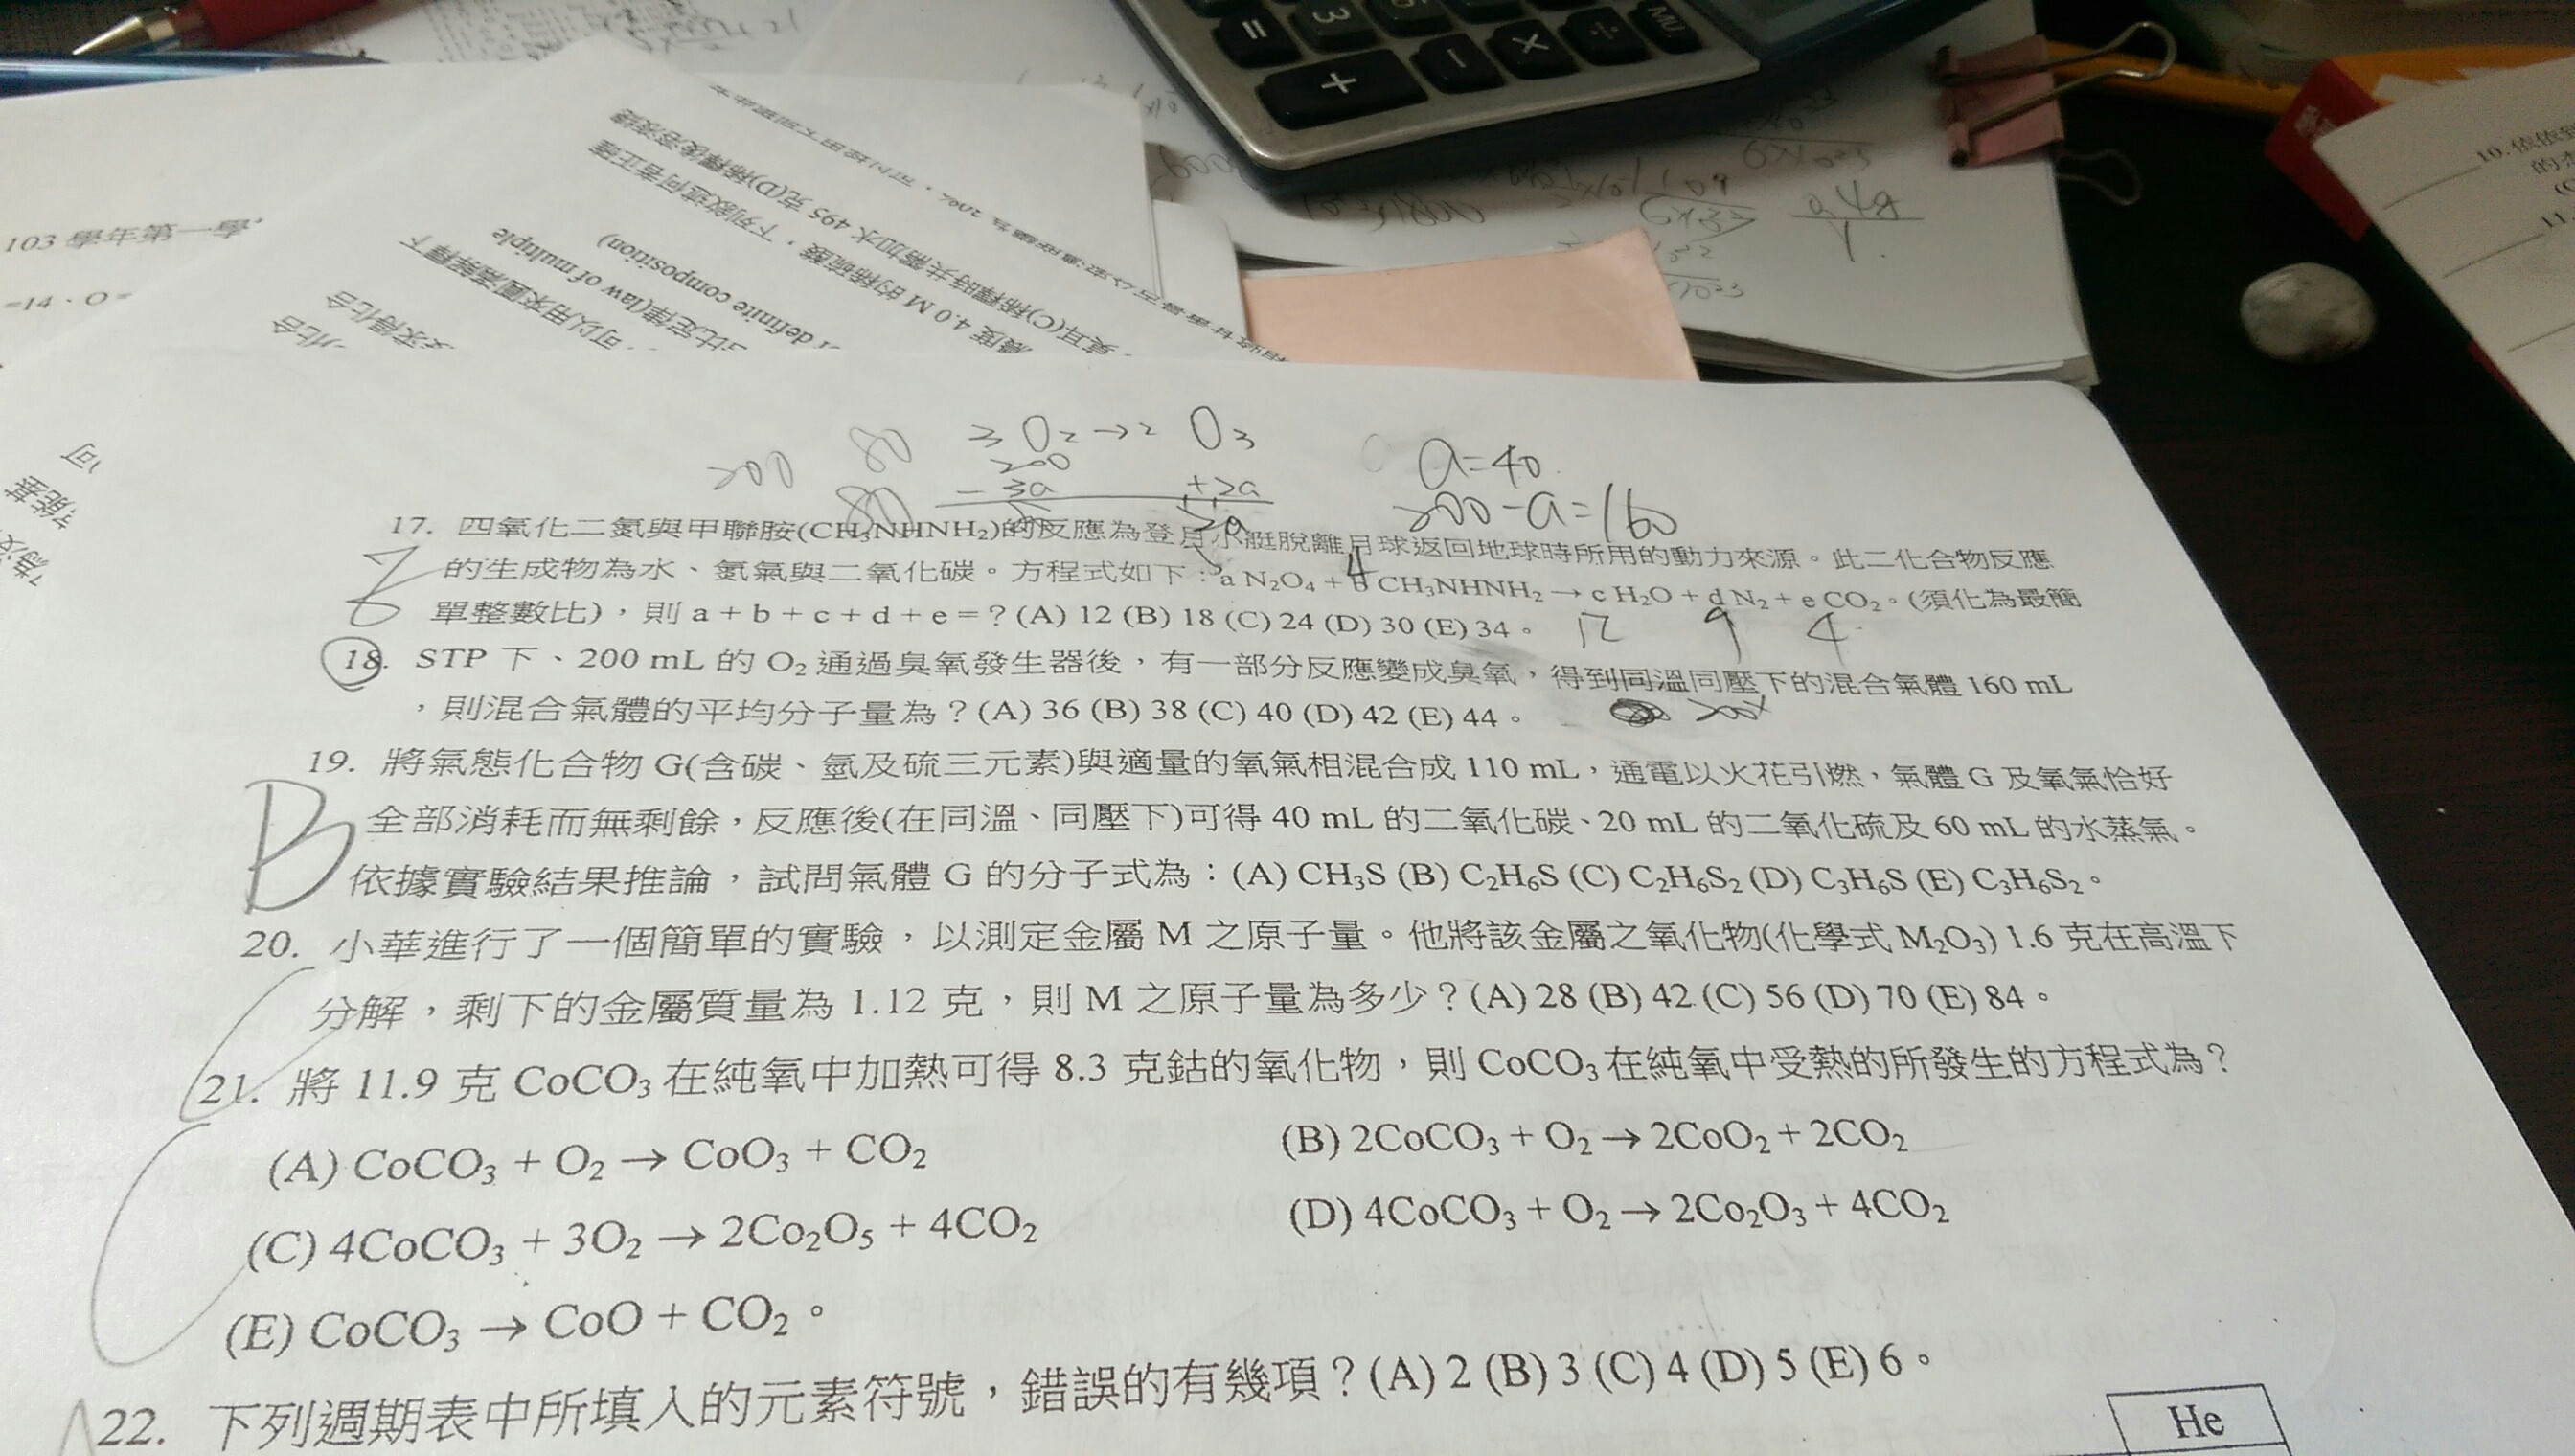 103 學年第一
=14、O=
definite composition)
比定律(law of multiple
可以用來圓滿解釋下
濃度 4.0 M 的稀硫酸，下列敘述何者正確
莫耳(C)稀釋時共需加水 495 克(D)稀釋後溶液總
3O₂→2 O₃
200 80 200 a=40
80 -3a +2a 200-a=160
17. 四氧化二氮與甲聯胺(CH₃NHNH₂)的反應為登月小艇脫離月球返回地球時所用的動力來源。此二化合物反應
的生成物為水、氮氣與二氧化碳。方程式如下：a N₂O₄ + b CH₃NHNH₂ → c H₂O + d N₂ + e CO₂。(須化為最簡
單整數比)，則 a + b + c + d + e = ? (A) 12 (B) 18 (C) 24 (D) 30 (E) 34。
4 12 9 4
18. STP 下、200 mL 的 O₂ 通過臭氧發生器後，有一部分反應變成臭氧，得到同溫同壓下的混合氣體 160 mL
，則混合氣體的平均分子量為？(A) 36 (B) 38 (C) 40 (D) 42 (E) 44。
19. 將氣態化合物 G(含碳、氫及硫三元素)與適量的氧氣相混合成 110 mL，通電以火花引燃，氣體 G 及氧氣恰好
B
全部消耗而無剩餘，反應後(在同溫、同壓下)可得 40 mL 的二氧化碳、20 mL 的二氧化硫及 60 mL 的水蒸氣。
依據實驗結果推論，試問氣體 G 的分子式為：(A) CH₃S (B) C₂H₆S (C) C₂H₆S₂ (D) C₃H₆S (E) C₃H₆S₂。
20. 小華進行了一個簡單的實驗，以測定金屬 M 之原子量。他將該金屬之氧化物(化學式 M₂O₃) 1.6 克在高溫下
分解，剩下的金屬質量為 1.12 克，則 M 之原子量為多少？(A) 28 (B) 42 (C) 56 (D) 70 (E) 84。
21. 將 11.9 克 CoCO₃ 在純氧中加熱可得 8.3 克鈷的氧化物，則 CoCO₃ 在純氧中受熱的所發生的方程式為？
(A) CoCO₃ + O₂ → CoO₃ + CO₂
(B) 2CoCO₃ + O₂ → 2CoO₂ + 2CO₂
(C) 4CoCO₃ + 3O₂ → 2Co₂O₅ + 4CO₂
(D) 4CoCO₃ + O₂ → 2Co₂O₃ + 4CO₂
(E) CoCO₃ → CoO + CO₂。
22. 下列週期表中所填入的元素符號，錯誤的有幾項？(A) 2 (B) 3 (C) 4 (D) 5 (E) 6。
He